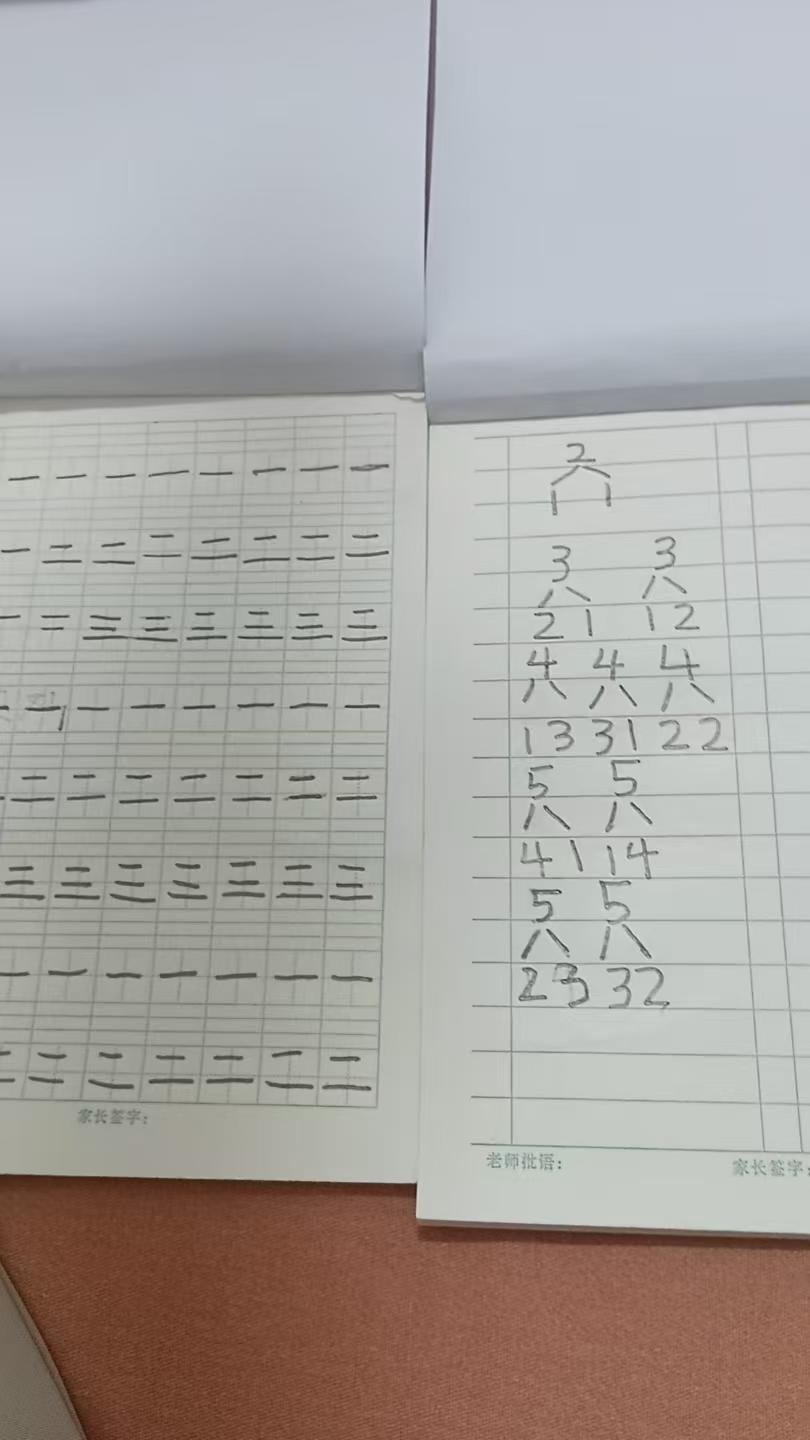 一 一 一 一 一 一 一 一
一 二 二 二 二 二 二 二
二 三 三 三 三 三 三
一 一 一 一 一 一 一
二 二 二 二 二 二 二
三 三 三 三 三 三 三
一 一 一 一 一 一 一 一
二 二 二 二 二 二 二
家长签字:
2
1 1
3 3
2 1 1 2
4 4 4
1 3 3 1 2 2
5 5
4 1 1 4
5 5
2 3 3 2
老师批语: 家长签字: